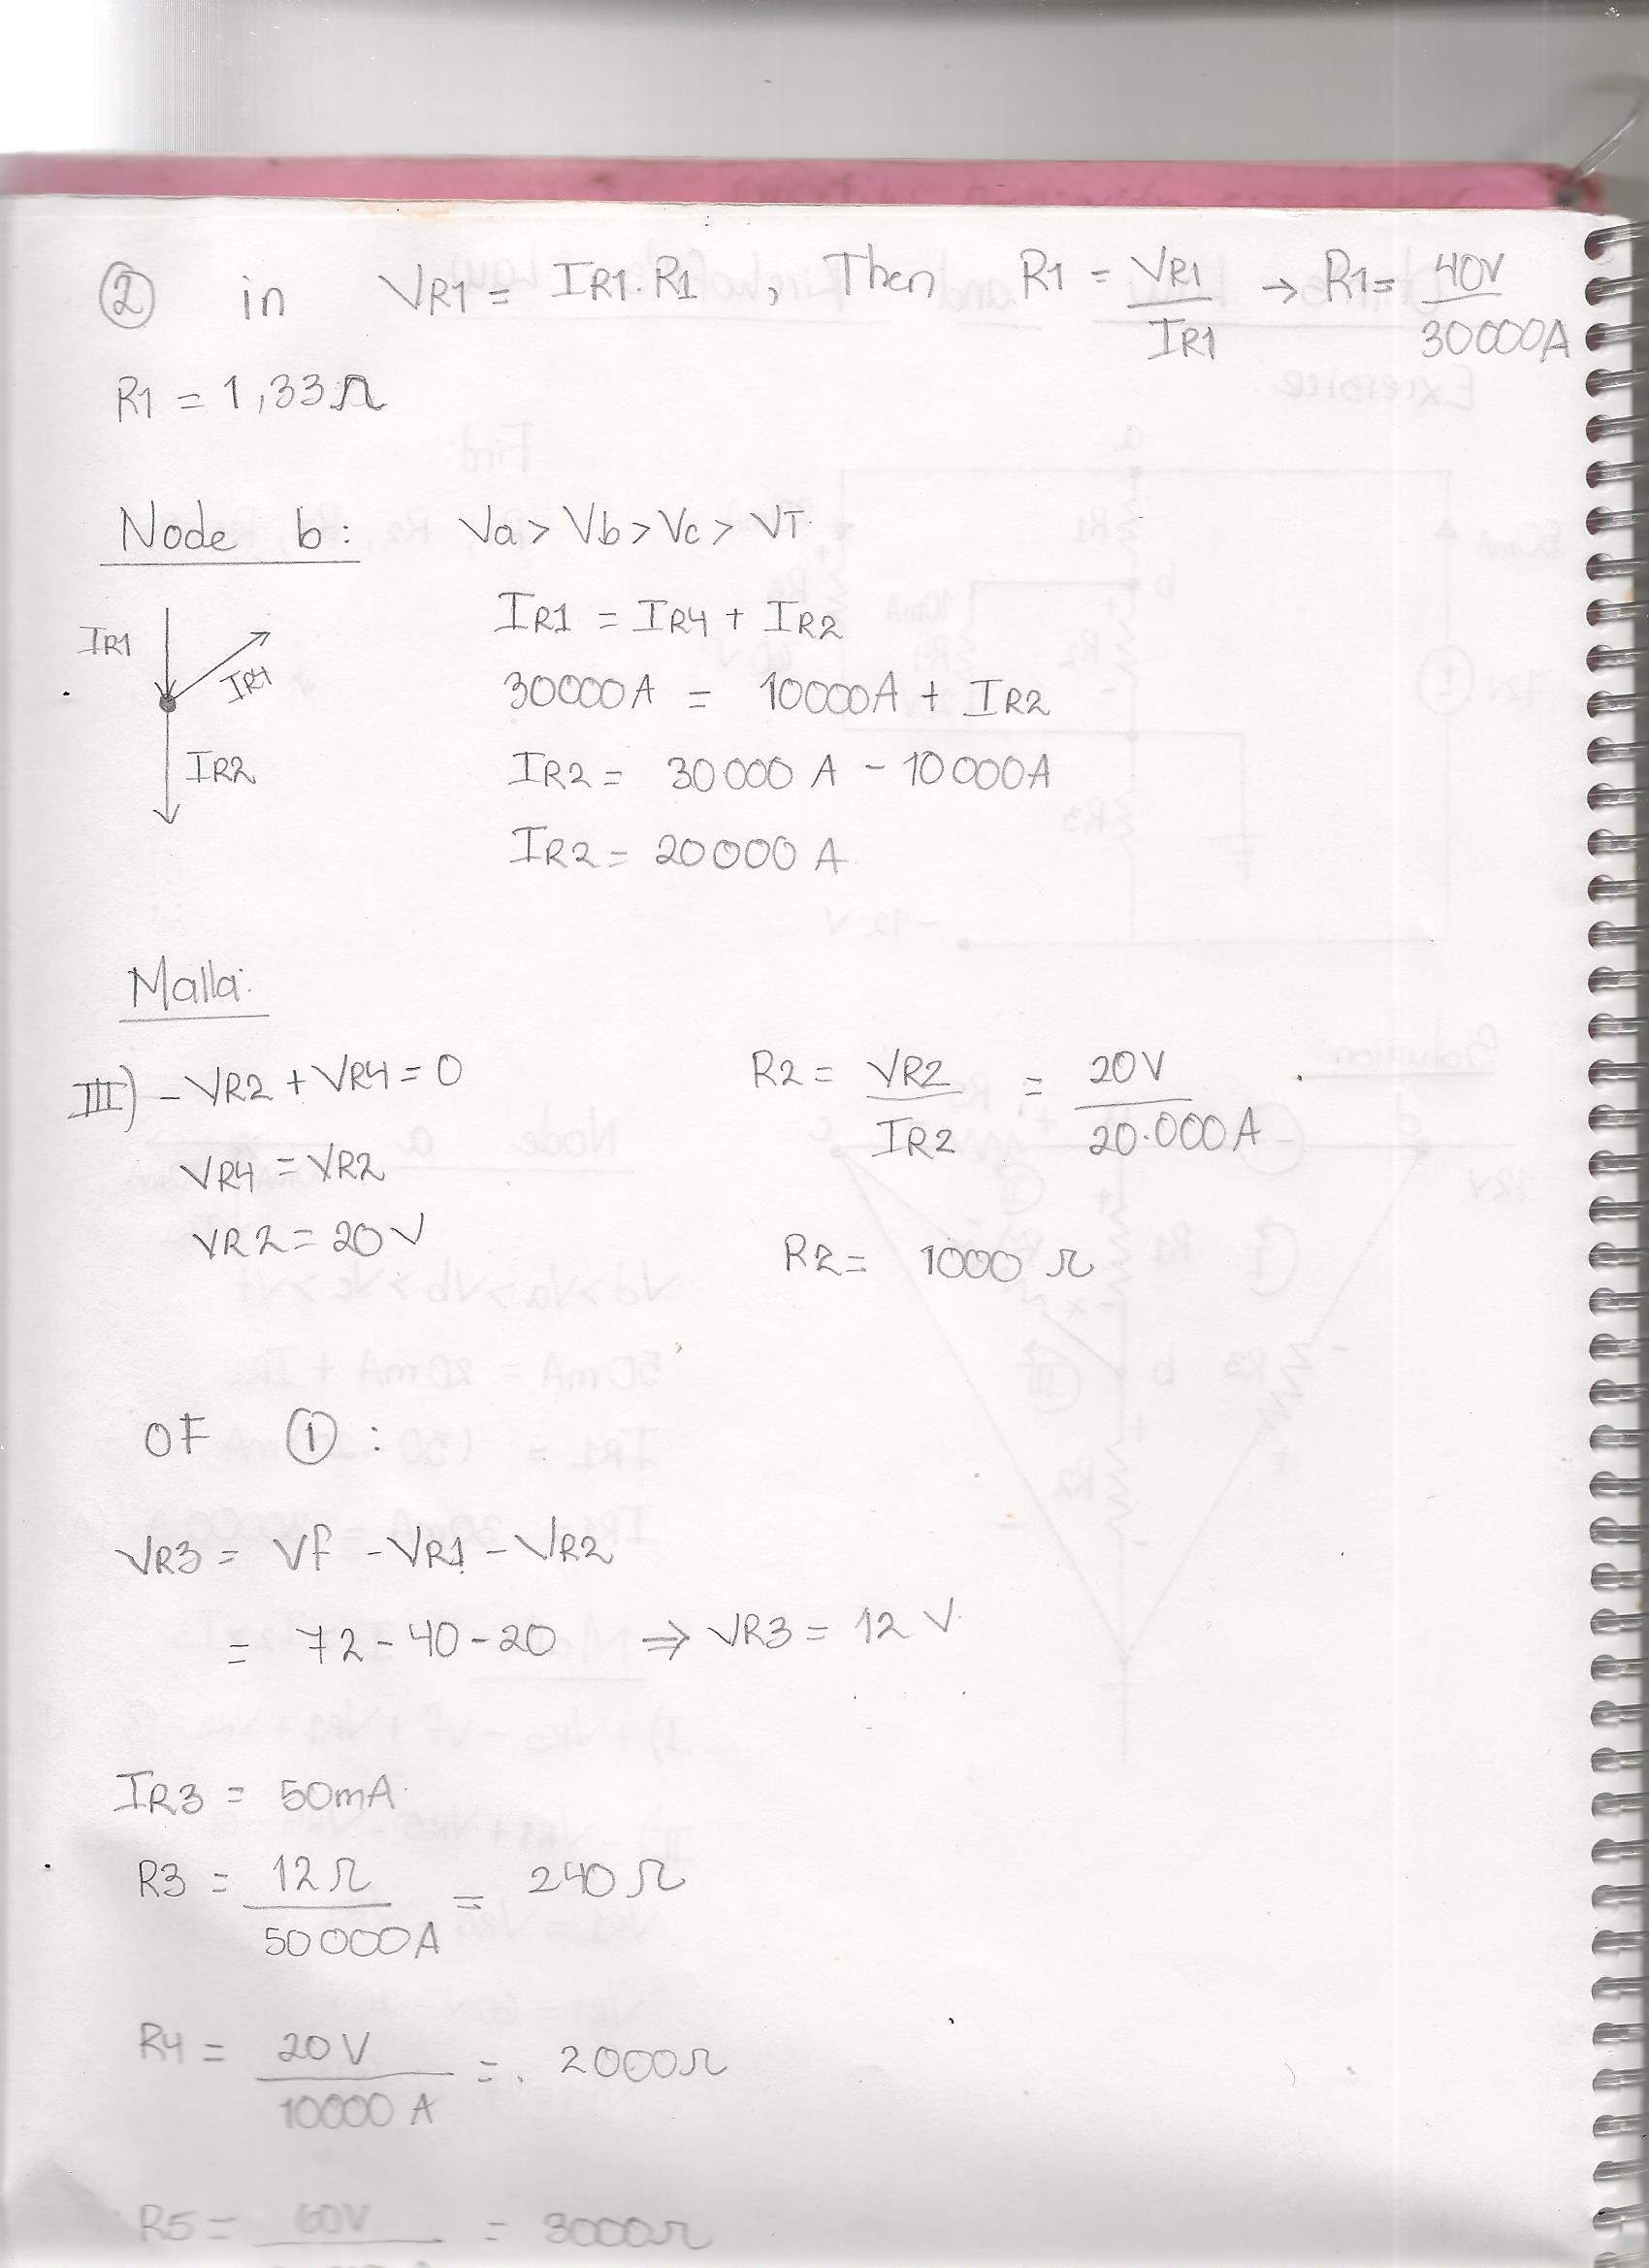 ② in VR1 = IR1.R1, Then R1 = VR1/IR1 → R1= 40V/30000A
R1 = 1,33Ω
Node b: Va > Vb > Vc > VT
IR1
IR4
IR2
IR1 = IR4 + IR2
30000A = 10000A + IR2
IR2 = 30000 A - 10000A
IR2 = 20000 A
Malla:
III) - VR2 + VR4 = 0
VR4 = VR2
VR2 = 20V
R2 = VR2/IR2 = 20V/20.000A
R2 = 1000 Ω
OF ① :
VR3 = Vf - VR1 - VR2
= 72 - 40 - 20 ⇒ VR3 = 12 V
IR3 = 50mA
R3 = 12Ω/50000A = 240 Ω
R4 = 20V/10000 A = 2000Ω
R5 = 60V = 3000Ω